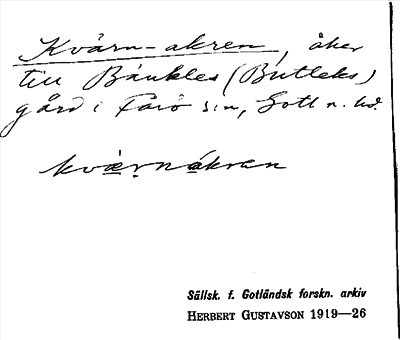 Kvärn-akren, åker
till Bäukles (Butleks)
gård i Fårö s:n, Gotl n. hd.
kvärnákran
Sällsk. f. Gotländsk forskn. arkiv
HERBERT GUSTAVSON 1919—26